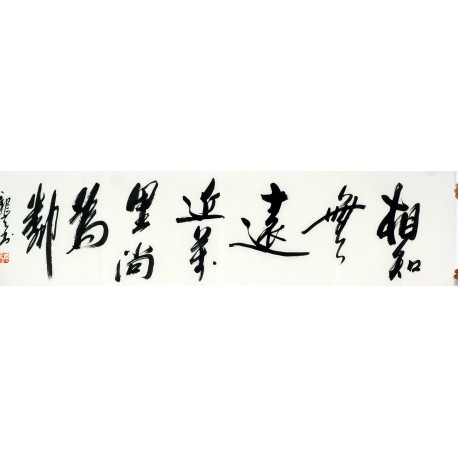 相知
無
遠
近萬
里尚
為
鄰